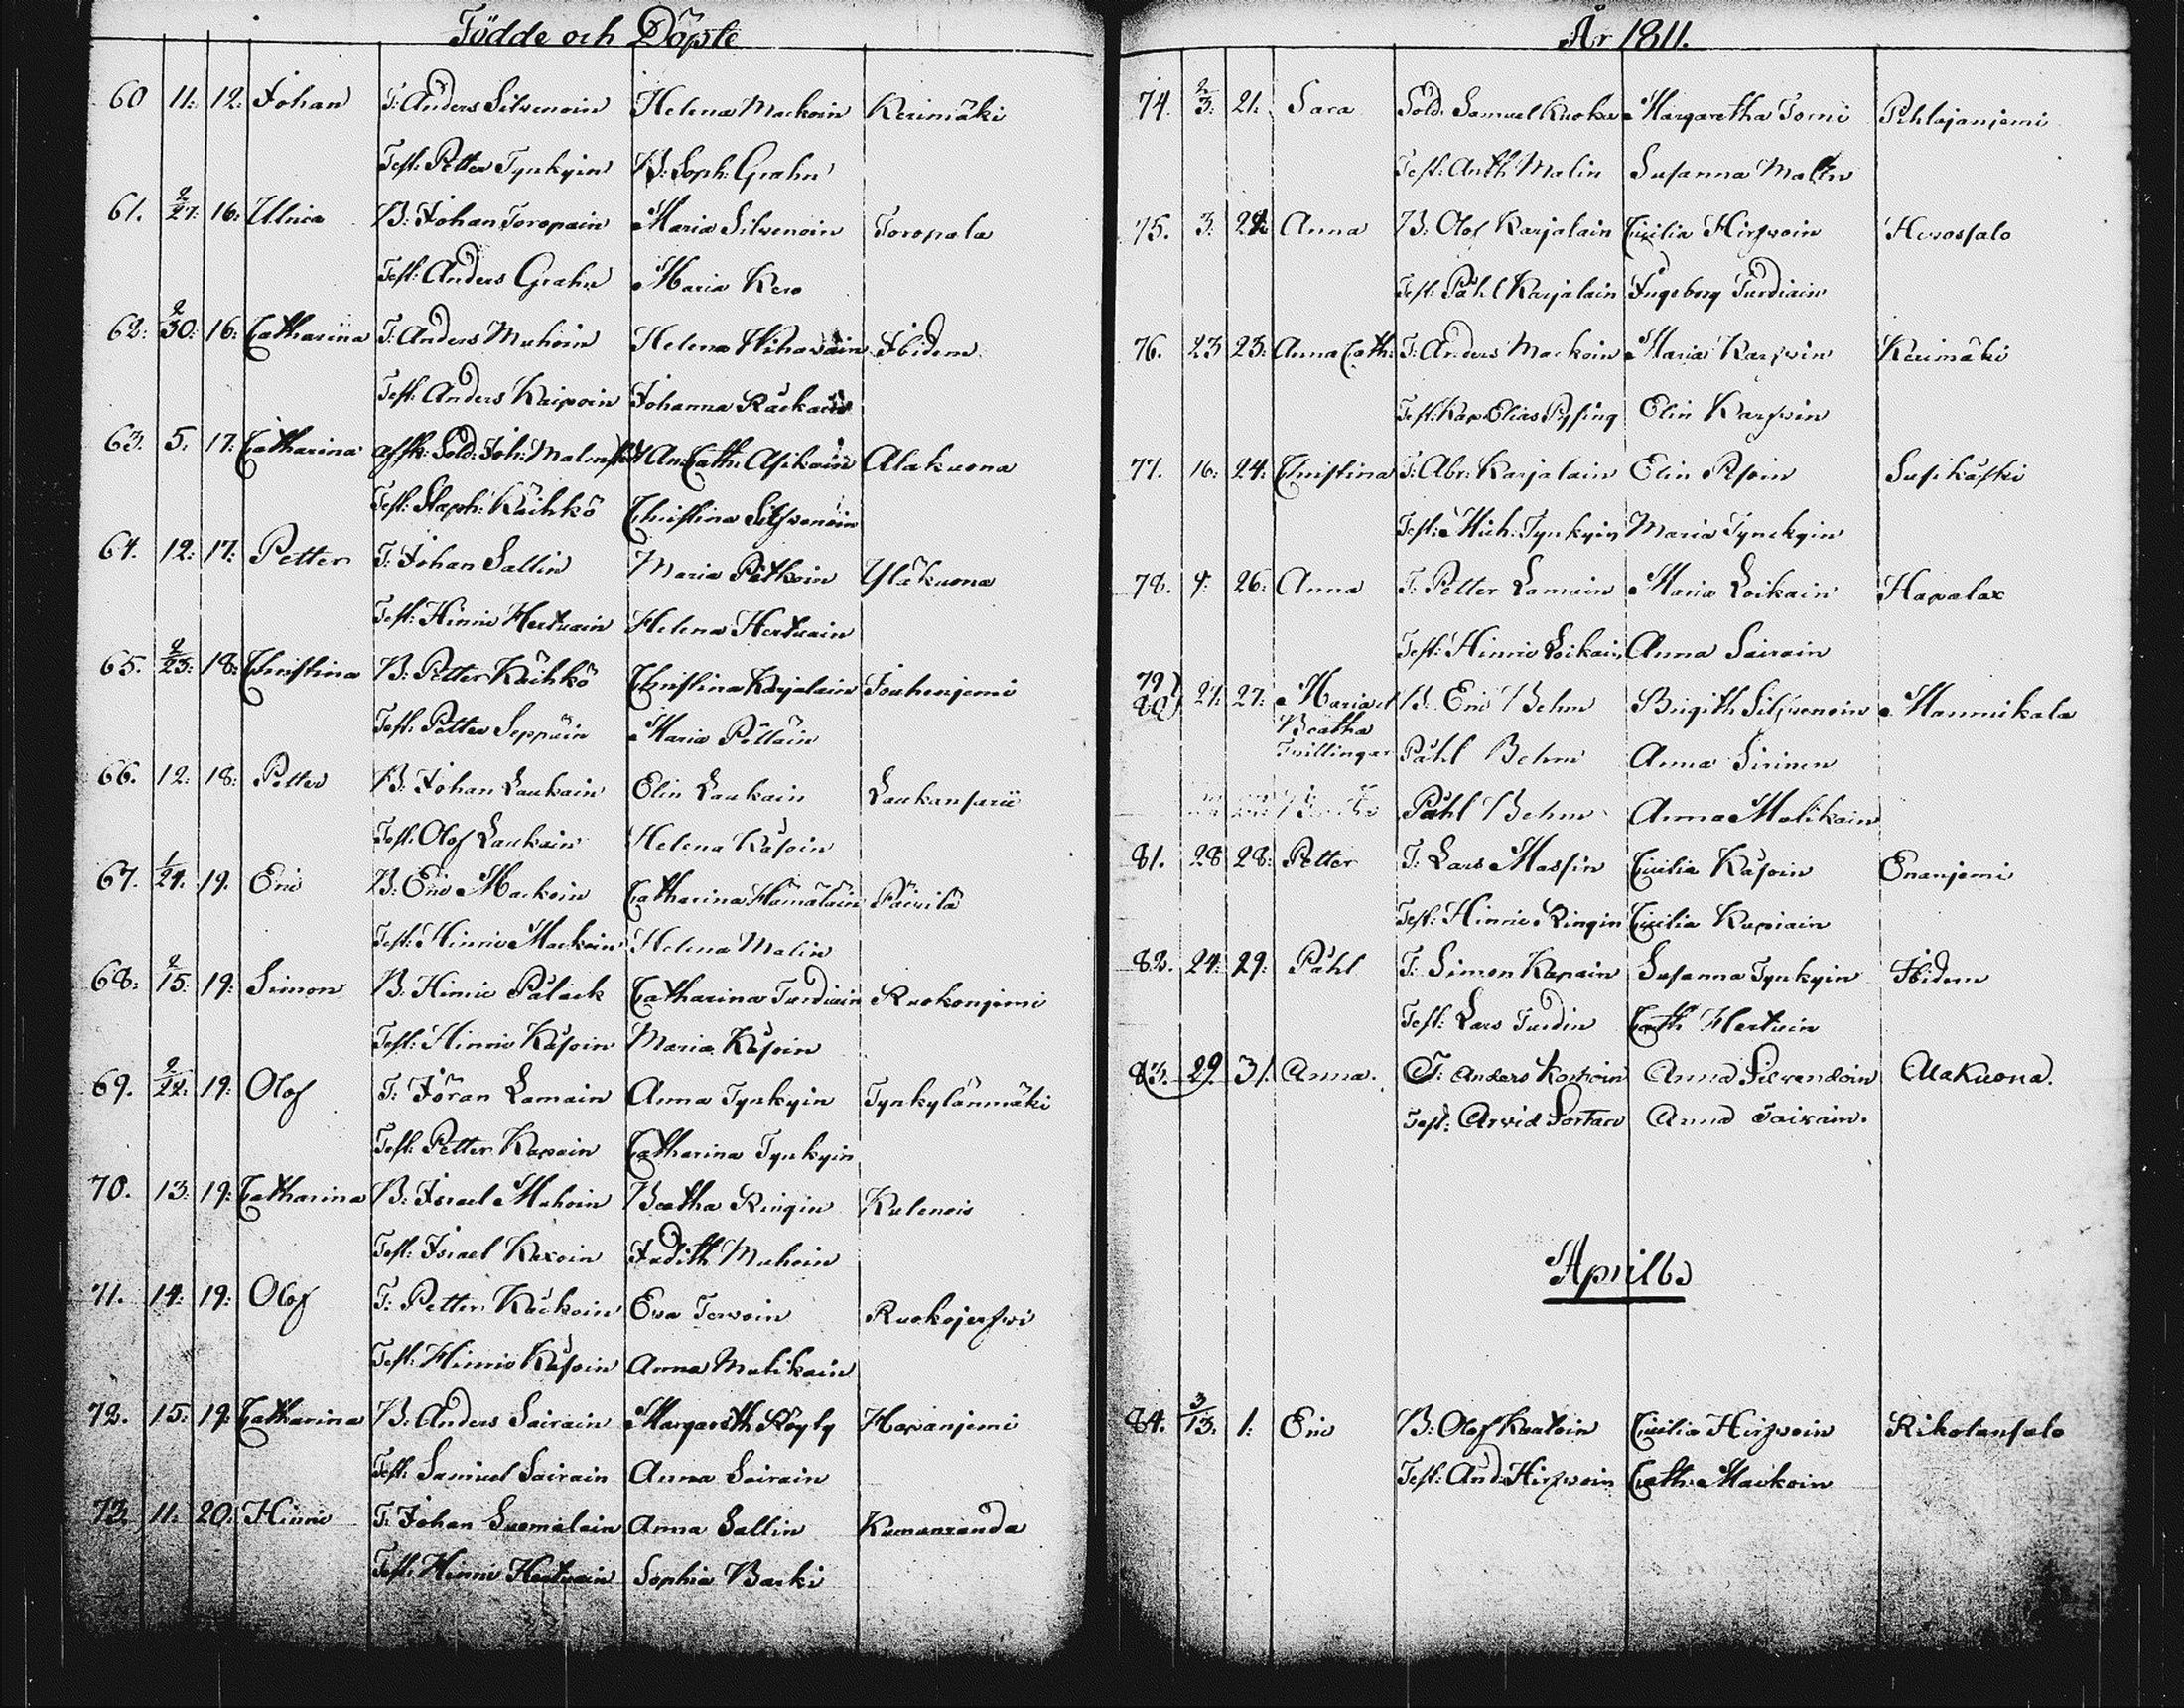 Födde och Döpte
60 11: 12: Johan T: Anders Silvenoin Helena Mackoin Kerimäki
Test: Petter Tynkyin B: Soph: Grahn
61. 2/27: 16: Ulrica B: Johan Toropain Maria Silvenoin Toropala
Test: Anders Grahn Maria Kero
62: 2/30: 16: Catharina T: Anders Muhoin Helena Wihavain Ibidem
Test: Anders Kaipoin Johanna Räsikäin
63. 5. 17: Catharina afsk: Sold: Joh: Malin An: Cath: Asikain Alakuona
Test: Staph: Käihkö Christina Silfvenoin
64. 12: 17: Petter T: Johan Sallin Maria Pitkoin Yläkuona
Test: Hinric Hertuain Helena Hertuain
65. 2/23: 18: Christina B: Petter Käihkö Christina Karjalain Jouhenjemi
Test: Petter Seppäin Maria Pölläin
66. 12: 18: Petter B: Johan Laukain Elin Laukain Laukansarii
Test: Olof Laukain Helena Käsoin
67. 1/24. 19. Eric B: Eric Mackoin Catharina Hämäläin Päivilä
Test: Hinric Mackoin Helena Malin
68: 2/15: 19: Simon B: Hinric Palack Catharina Turdiain Ruokonjemi
Test: Hinric Käsoin Maria Käsoin
69. 2/22: 19: Olof T: Jöran Lamain Anna Tynkyin Tynkylänmäki
Test: Petter Kapain Catharina Tynkyin
70. 13: 19: Catharina B: Israel Muhoin Beatha Ringin Kulenois
Test: Israel Kexoin Judith Muhoin
71. 14: 19: Olof T: Petter Käckoin Eva Tervoin Ruokojerfwi
Test: Hinric Käsoin Anna Mulikain
72. 15: 19: Catharina B: Anders Sairain Margareth Röyly Hapanjemi
Test: Samuel Sairain Anna Sairain
73. 11: 20: Hinric T: Johan Suomalain Anna Sallin Kumunranda
Test: Hinric Hertuain Sophia Backi
År 1811.
74. 2/3: 21: Sara Sold. Samuel Kuoka Margaretha Torni Pihlajanjemi
Test: Anth Malin Susanna Malin
75. 3: 22: Anna B: Olof Karjalain Cicilia Hirfvoin Herossalo
Test: Påhl Karjalain Ingeborg Turdiain
76. 23 23: Anna Cath: T: Anders Mackoin Maria Karfvin Kerimäki
Test: Kap: Elias Pipping Elin Karfvin
77. 16: 24: Christina T: Abr: Karjalain Elin Pesoin Susikäski
Test: Mich: Tynkyin Maria Tynckyin
78. 4: 26: Anna T: Petter Lamain Maria Loikain Hapalax
Test: Hinric Loikain Anna Sairain
79) 80) 27: 27: Maria et B: Eric Behm Brigith Silfvenoin Mannikala
Beatha
Tvillingar Påhl Behm Anna Sirinen
Påhl Behm Anna Malikain
81. 28 28: Petter T: Lars Massin Cicilia Käsoin Enanjemi
Test: Hinric Ringin Cicilia Kupiain
82. 24: 29: Påhl T: Simon Kapain Susanna Tynkyin Ibidem
Test: Lars Turdin Cath Hertuin
83. 29. 31. Anna. T: Anders Korhoin Anna Silvendoin Alakuona.
Test: Arvid Sortan Anna Sairain.
Aprilis
84. 3/13. 1: Eric B: Olof Kautoin Cicilia Hirfvoin Rikolansalo
Test: And: Hirfvoin Cath: Mackoin